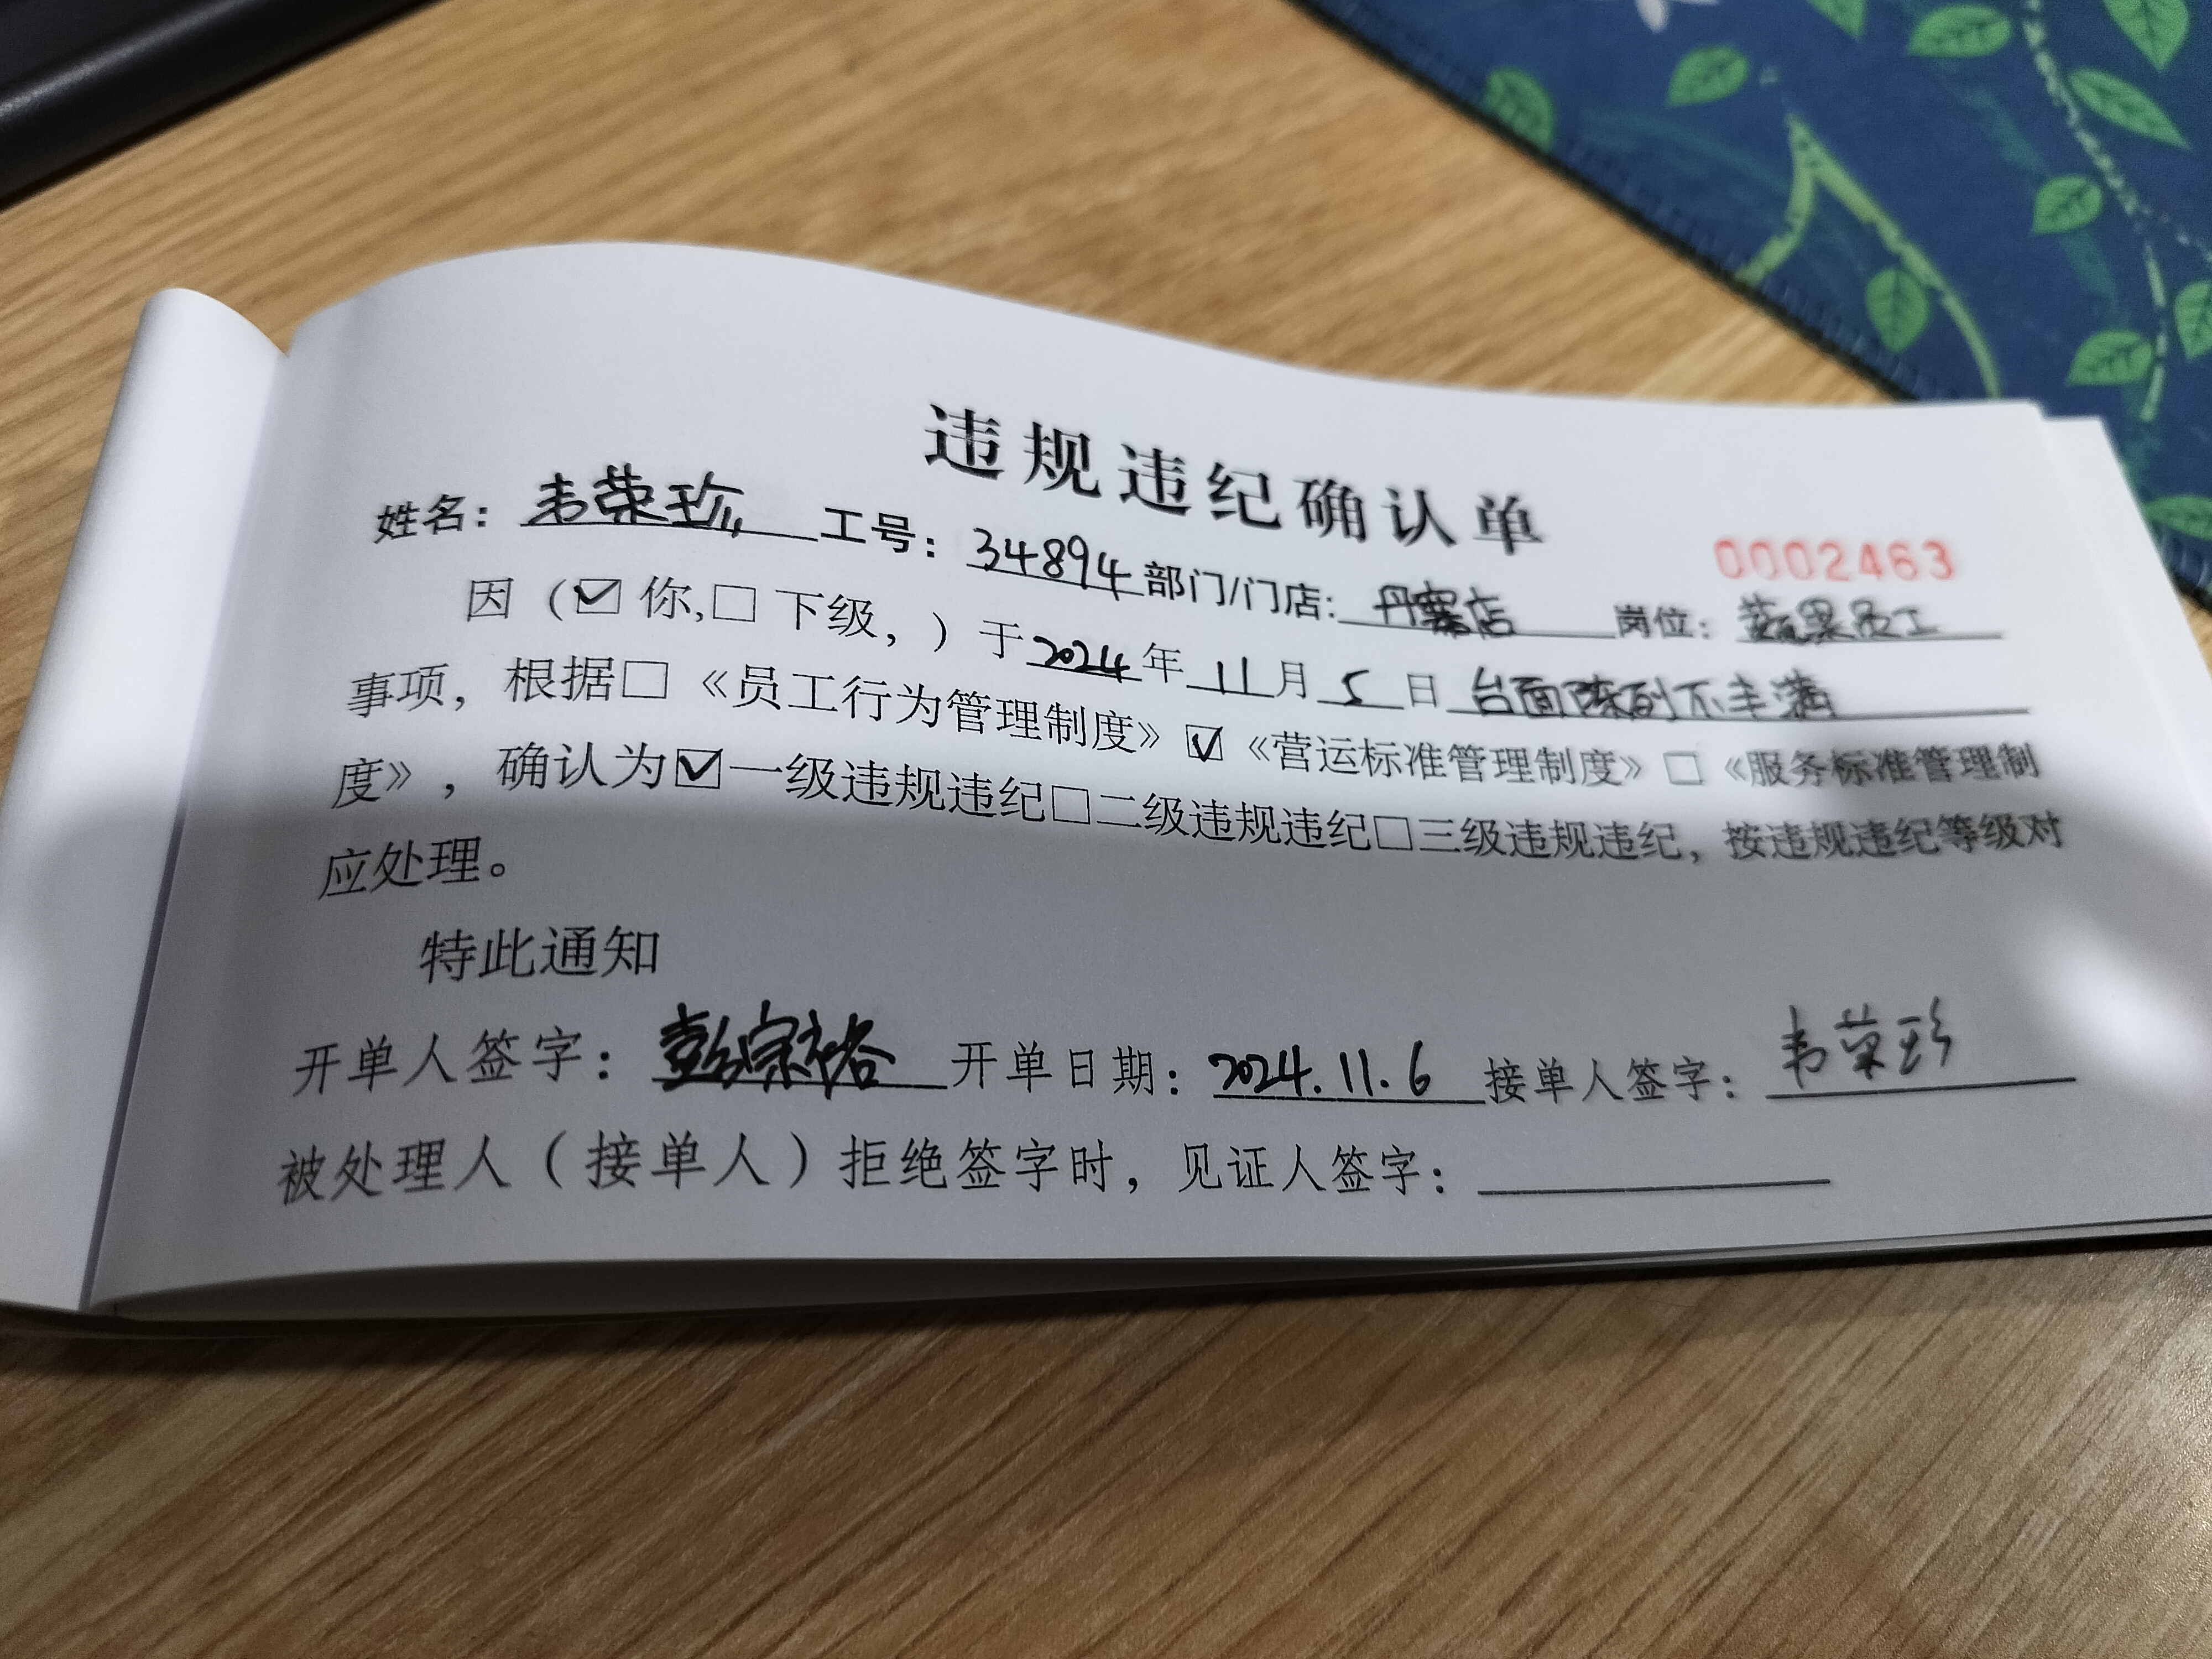 违规违纪确认单
0002463
姓名：韦荣珍 工号：34894 部门/门店：丹寨店 岗位：蔬果员工
因（☑你,□下级，）于2024年11月5日台面陈列不丰满
事项，根据□《员工行为管理制度》☑《营运标准管理制度》□《服务标准管理制
度》，确认为☑一级违规违纪□二级违规违纪□三级违规违纪，按违规违纪等级对
应处理。
特此通知
开单人签字：彭宗裕 开单日期：2024.11.6 接单人签字：韦荣珍
被处理人（接单人）拒绝签字时，见证人签字：